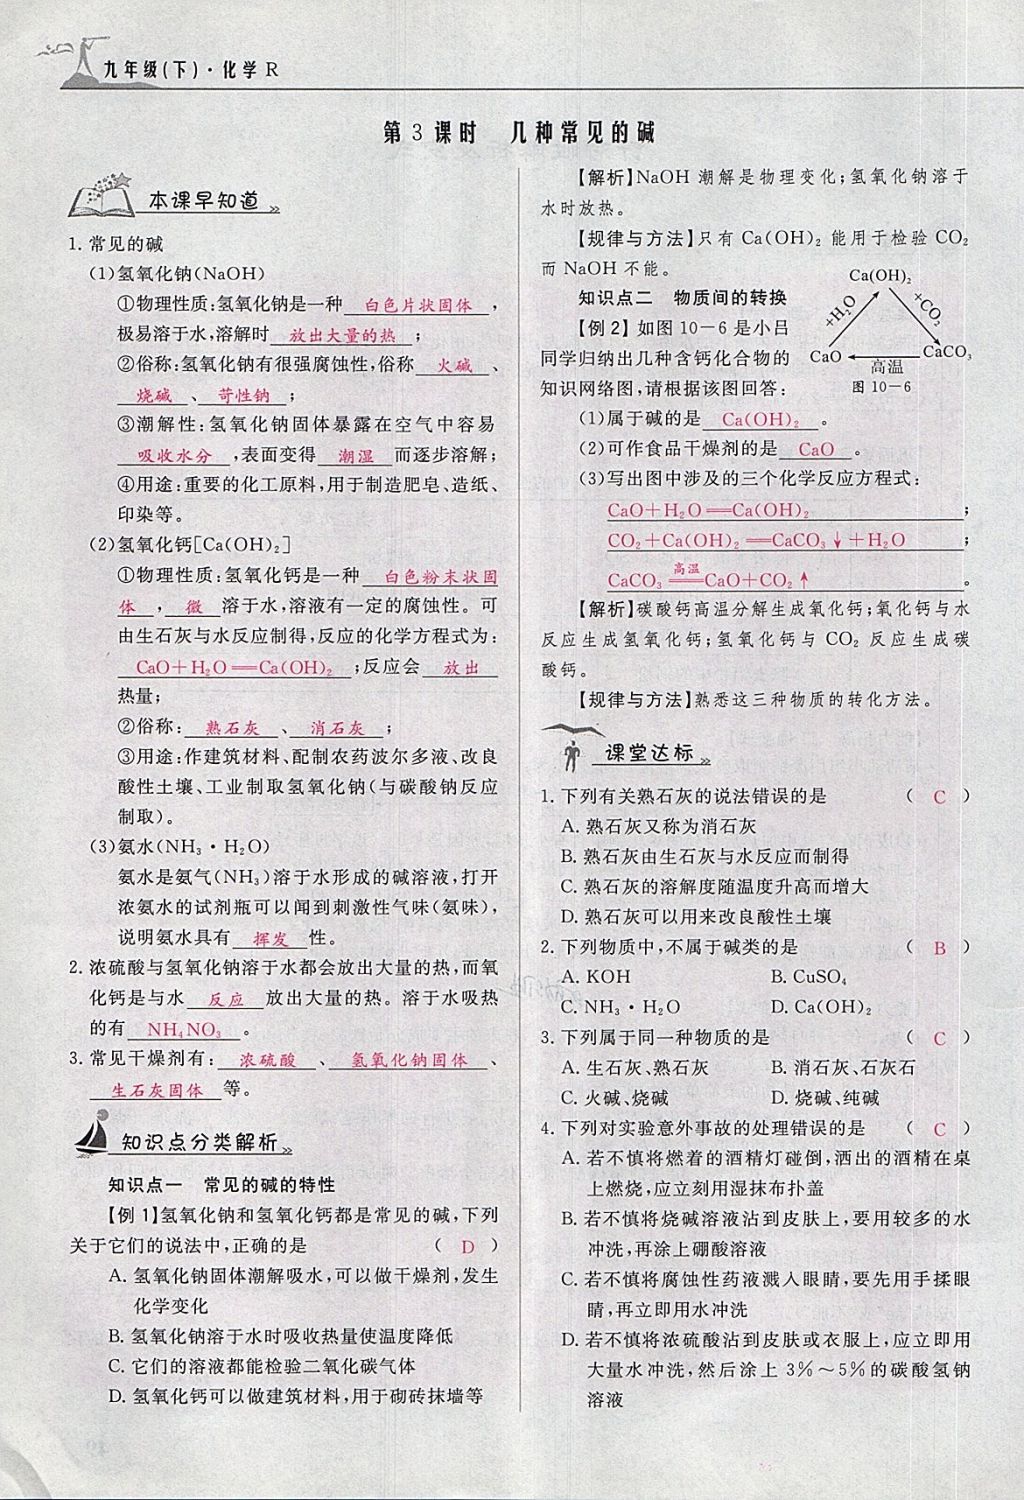 九年级(下)·化学 R
第 3 课时 几种常见的碱
本课早知道
1. 常见的碱
(1)氢氧化钠(NaOH)
①物理性质:氢氧化钠是一种 白色片状固体 ,
极易溶于水,溶解时 放出大量的热 ;
②俗称:氢氧化钠有很强腐蚀性,俗称 火碱 、
烧碱 、 苛性钠 ;
③潮解性:氢氧化钠固体暴露在空气中容易
吸收水分 ,表面变得 潮湿 而逐步溶解;
④用途:重要的化工原料,用于制造肥皂、造纸、
印染等。
(2)氢氧化钙[Ca(OH)₂]
①物理性质:氢氧化钙是一种 白色粉末状固
体 , 微 溶于水,溶液有一定的腐蚀性。可
由生石灰与水反应制得,反应的化学方程式为:
CaO+H₂O══Ca(OH)₂ ;反应会 放出
热量;
②俗称: 熟石灰 、 消石灰 ;
③用途:作建筑材料、配制农药波尔多液、改良
酸性土壤、工业制取氢氧化钠(与碳酸钠反应
制取)。
(3)氨水(NH₃·H₂O)
氨水是氨气(NH₃)溶于水形成的碱溶液,打开
浓氨水的试剂瓶可以闻到刺激性气味(氨味),
说明氨水具有 挥发 性。
2. 浓硫酸与氢氧化钠溶于水都会放出大量的热,而氧
化钙是与水 反应 放出大量的热。溶于水吸热
的有 NH₄NO₃ 。
3. 常见干燥剂有: 浓硫酸 、 氢氧化钠固体 、
生石灰固体 等。
知识点分类解析
知识点一 常见的碱的特性
【例 1】氢氧化钠和氢氧化钙都是常见的碱,下列
关于它们的说法中,正确的是 ( D )
A. 氢氧化钠固体潮解吸水,可以做干燥剂,发生
化学变化
B. 氢氧化钠溶于水时吸收热量使温度降低
C. 它们的溶液都能检验二氧化碳气体
D. 氢氧化钙可以做建筑材料,用于砌砖抹墙等
【解析】NaOH 潮解是物理变化;氢氧化钠溶于
水时放热。
【规律与方法】只有 Ca(OH)₂ 能用于检验 CO₂
而 NaOH 不能。
知识点二 物质间的转换
【例 2】如图 10-6 是小吕
同学归纳出几种含钙化合物的
知识网络图,请根据该图回答:
Ca(OH)₂
+H₂O
+CO₂
CaO
CaCO₃
高温
图 10-6
(1)属于碱的是 Ca(OH)₂ 。
(2)可作食品干燥剂的是 CaO 。
(3)写出图中涉及的三个化学反应方程式:
CaO+H₂O══Ca(OH)₂ ;
CO₂+Ca(OH)₂══CaCO₃↓+H₂O ;
高温
CaCO₃══CaO+CO₂↑ 。
【解析】碳酸钙高温分解生成氧化钙;氧化钙与水
反应生成氢氧化钙;氢氧化钙与 CO₂ 反应生成碳
酸钙。
【规律与方法】熟悉这三种物质的转化方法。
课堂达标
1. 下列有关熟石灰的说法错误的是 ( C )
A. 熟石灰又称为消石灰
B. 熟石灰由生石灰与水反应而制得
C. 熟石灰的溶解度随温度升高而增大
D. 熟石灰可以用来改良酸性土壤
2. 下列物质中,不属于碱类的是 ( B )
A. KOH B. CuSO₄
C. NH₃·H₂O D. Ca(OH)₂
3. 下列属于同一种物质的是 ( C )
A. 生石灰、熟石灰 B. 消石灰、石灰石
C. 火碱、烧碱 D. 烧碱、纯碱
4. 下列对实验意外事故的处理错误的是 ( C )
A. 若不慎将燃着的酒精灯碰倒,洒出的酒精在桌
上燃烧,应立刻用湿抹布扑盖
B. 若不慎将烧碱溶液沾到皮肤上,要用较多的水
冲洗,再涂上硼酸溶液
C. 若不慎将腐蚀性药液溅入眼睛,要先用手揉眼
睛,再立即用水冲洗
D. 若不慎将浓硫酸沾到皮肤或衣服上,应立即用
大量水冲洗,然后涂上 3%～5%的碳酸氢钠
溶液